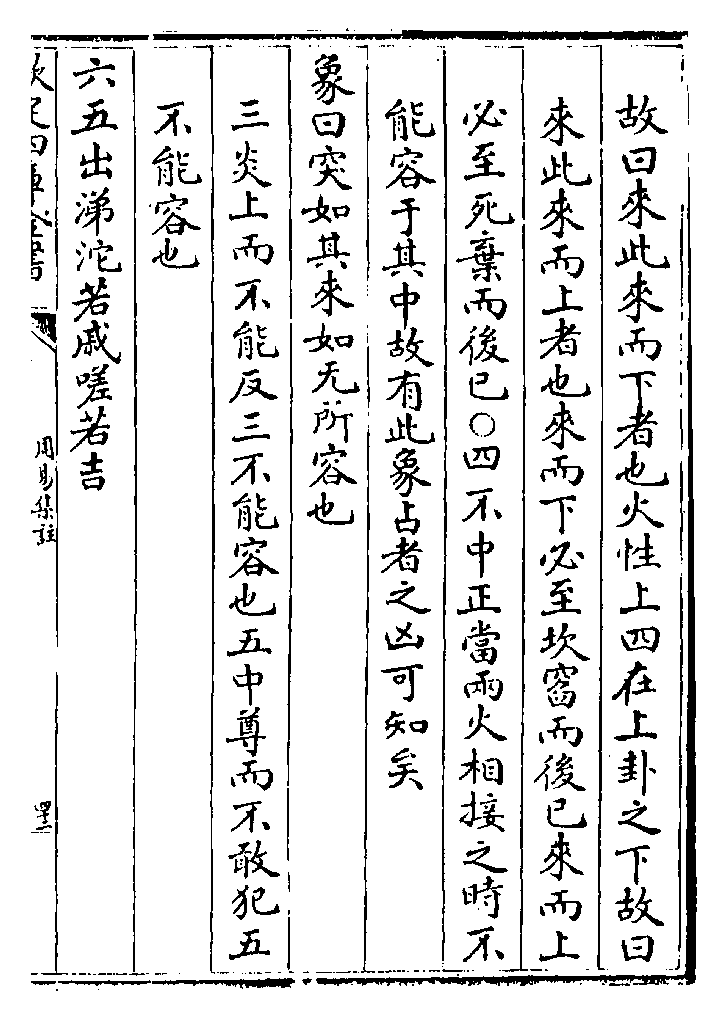 故曰來此來而下者也火性上四在上卦之下故曰
來此來而上者也來而下必至坎窞而後已來而上
必至死棄而後已○四不中正當兩火相接之時不
能容于其中故有此象占者之凶可知矣
象曰突如其來如无所容也
三炎上而不能反三不能容也五中尊而不敢犯五
不能容也
六五出涕沱若戚嗟若吉
欽定四庫全書
周易集註